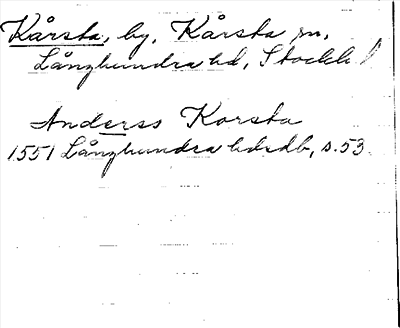 Kårsta, by, Kårsta sn,
Långhundra hd, Stockh. l
Anderss Korsta
1551 Långhundra hdsdb, s. 53.